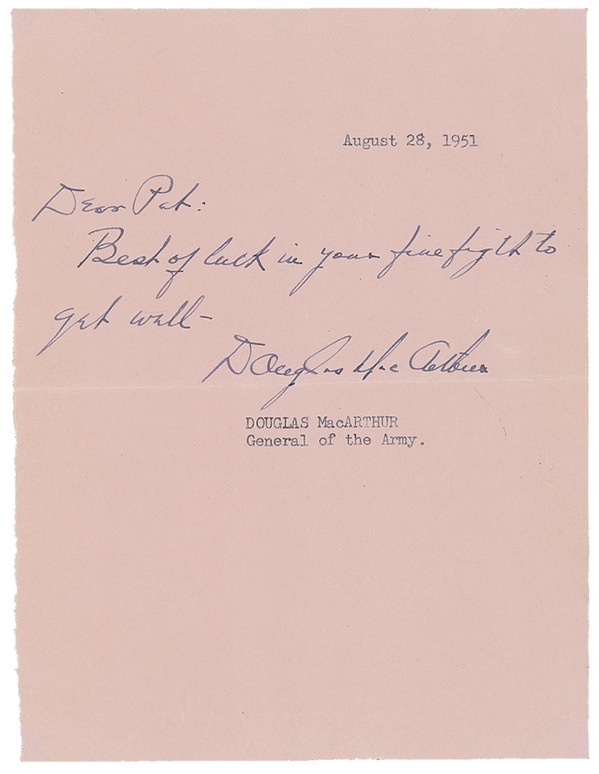 August 28, 1951
Dear Pat:
Best of luck in your fine fight to
get well-
Douglas MacArthur
DOUGLAS MacARTHUR
General of the Army.